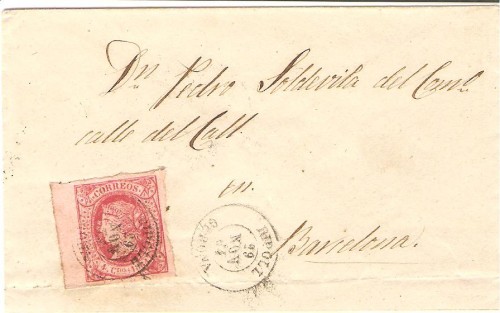 Dn Pedro Soldevila del Caml
calle del Call.
en
Barcelona.
CORREOS
RIPOLL
NOV
65
GERONA